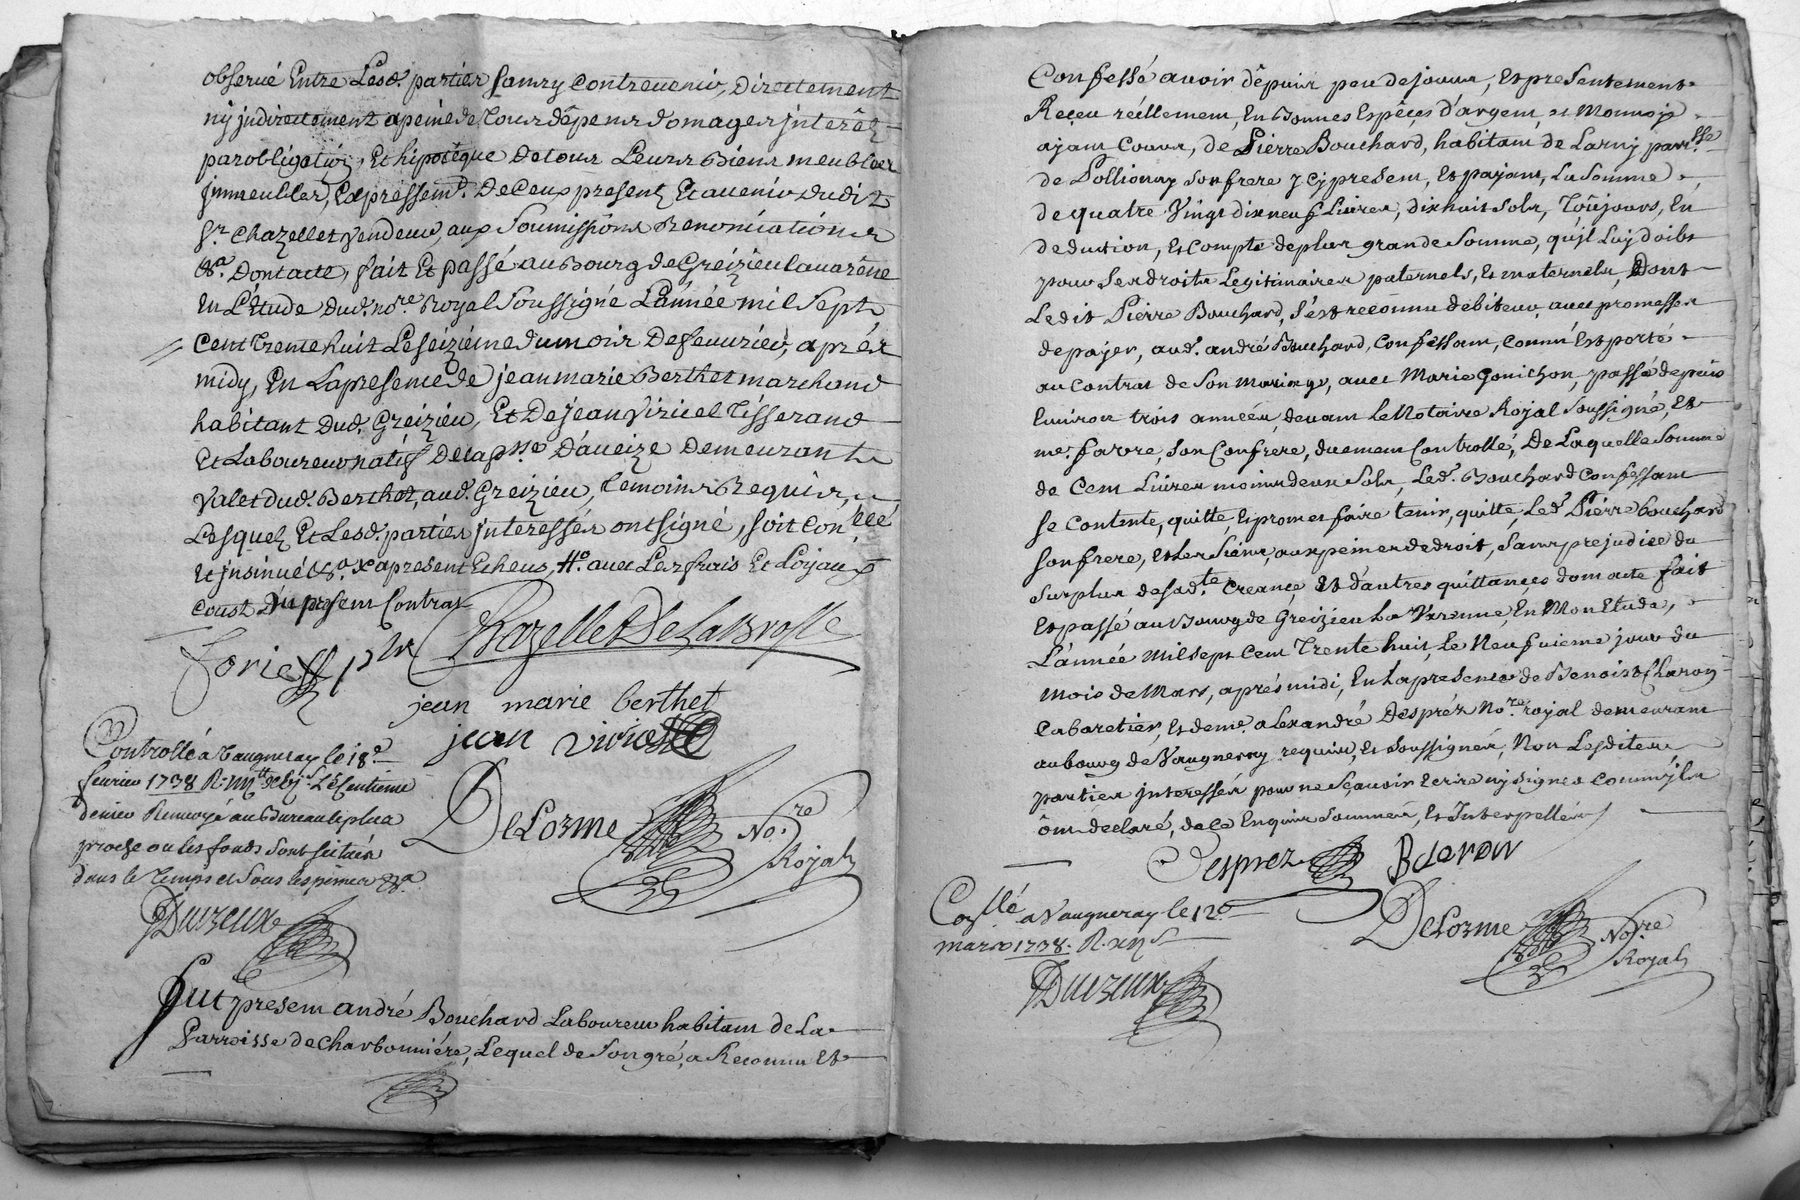 observé Entre Lesd. parties sans y contrevenir, directement
ny jndirectement apeine de Tous dêpens domages jnterêtz
par obligation, Et hipotêque de tous Leurs Biens meubles
jmmeubles, Expressemt. De Ceux presentz Et auenir dudit
Sr. Chazellet vendeur, aux Soumissions Renonciations
&a. Dont acte, fait Et passé au Bourg de Greizieu Lauarenne
En L'étude dud. nore. Royal Soussigné L'année mil Sept
Cent Trente huit Le Seizième du mois De feuurier, aprés
midy, En La presence de jean marie Berthet marchand
habitant Dud. Greizieu, Et De jean Viricel Tisserand
Et Laboureur natif De La psse D'aueize Demeurant
Valet dud. Berthet, aud. Greizieu, Temoins Requis,
Lesquelz Et Lesd. parties jnteressées ont signé, soit Conllé
Et jnsinué &a. x apresent Echeus, #. auec Les frais Et Loyaux
Coust Du present Contrat
Chazellet De La Brosse
jean marie berthet
jean viricel
Controllé à Vaugneray le 18e
feurier 1738 R. Le Centieme
denier Renuoyé au Bureau le plus
proche ou les fonds sont scitués
dans le Temps et sous les peines &a
DeLorme Nore Royal
Duvieux
Fut present andré Bouchard Laboureur habitant de La
Parroisse de Charbonniére, Lequel de Son gré, a Reconnu Et
Confessé auoir dêpuis peu de jours, Et presentement
Reçeu réellement, En Bonnes Espêçes d'argent, et Monnoye
ayant Cours, de Pierre Bouchard, habitant de Larny parrsse
de Pollionay son frere ycy present, Et payant, La Somme
de quatre Vingt dix neuf Liures, dixhuit Sols, Toûjours, En
deduction, Et Compte de plus grande Somme, qu'jl Luy doibt
pour Ses droits Legitimaires paternels, Et maternels, Dont
Ledit Pierre Bouchard, s'est reconnu debiteur, auec promesses
de payer, aud. andré Bouchard, Confessant, Comme Est porté
au Contrat de Son Mariage, auec Marie Gonichon, passé depuis
Enuiron trois années, deuant Le Notaire Royal Soussigné, Et
me. favre, Son Confrere, duement Controllé, De Laquelle Somme
de Cent Liures moins deux Sols, Led. Bouchard Confessant
se Contente, quitte Et promet faire tenir, quitte, Led. Pierre Bouchard
son frere, Et Les Siens, aux peines de droit, Sans prejudice du
Surplus de sadte. Creance Et d'autres quittançes dont acte fait
Et passé au Bourg de Greizieu La Varenne, En Mon Etude,
L'année Mil Sept Cent Trente huit, le Neufuieme jour du
Mois de Mars, aprés midi, En La presence de Benoist Charon
Cabaretier, Et de me. alexandré Després Nore. royal demeurant
au bourg de Vaugneray requis, Et Soussignés, Non Lesdites
parties jnteressées pour ne Sçauoir Ecrire ny signer Comme jls
ônt déclaré, de ce Enquis Sommés, Et Interpellés
Desprez B charon
Conllé a Vaugneray le 12e
mars 1738. R.
DeLorme Nore Royal
Duvieux